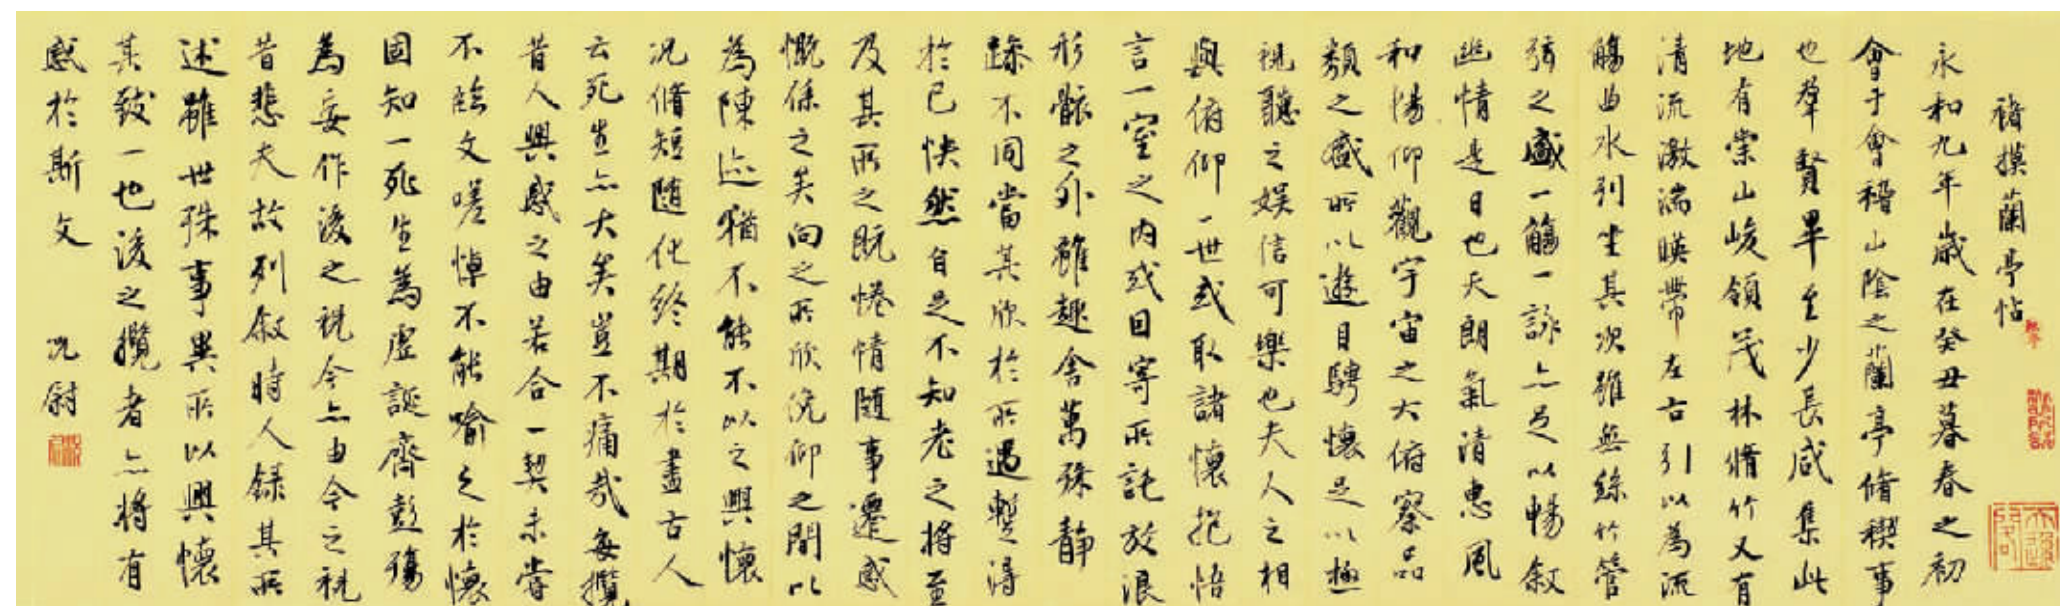 褚摸蘭亭帖
永和九年歲在癸丑暮春之初
會于會稽山陰之蘭亭脩稧事
也羣賢畢至少長咸集此
地有崇山峻領茂林脩竹又有
清流激湍暎帶左右引以為流
觴曲水列坐其次雖無絲竹管
弦之盛一觴一詠亦足以暢敘
幽情是日也天朗氣清惠風
和暢仰觀宇宙之大俯察品
類之盛所以遊目騁懷足以極
視聽之娛信可樂也夫人之相
與俯仰一世或取諸懷抱悟
言一室之內或因寄所託放浪
形骸之外雖趣舍萬殊靜
躁不同當其欣於所遇蹔得
於己怏然自足不知老之將至
及其所之既惓情隨事遷感
慨係之矣向之所欣俛仰之間以
為陳迹猶不能不以之興懷
況脩短隨化終期於盡古人
云死生亦大矣豈不痛哉每攬
昔人興感之由若合一契未嘗
不臨文嗟悼不能喻之於懷
固知一死生為虛誕齊彭殤
為妄作後之視今亦由今之視
昔悲夫故列敘時人錄其所
述雖世殊事異所以興懷
其致一也後之攬者亦將有
感於斯文 况尉